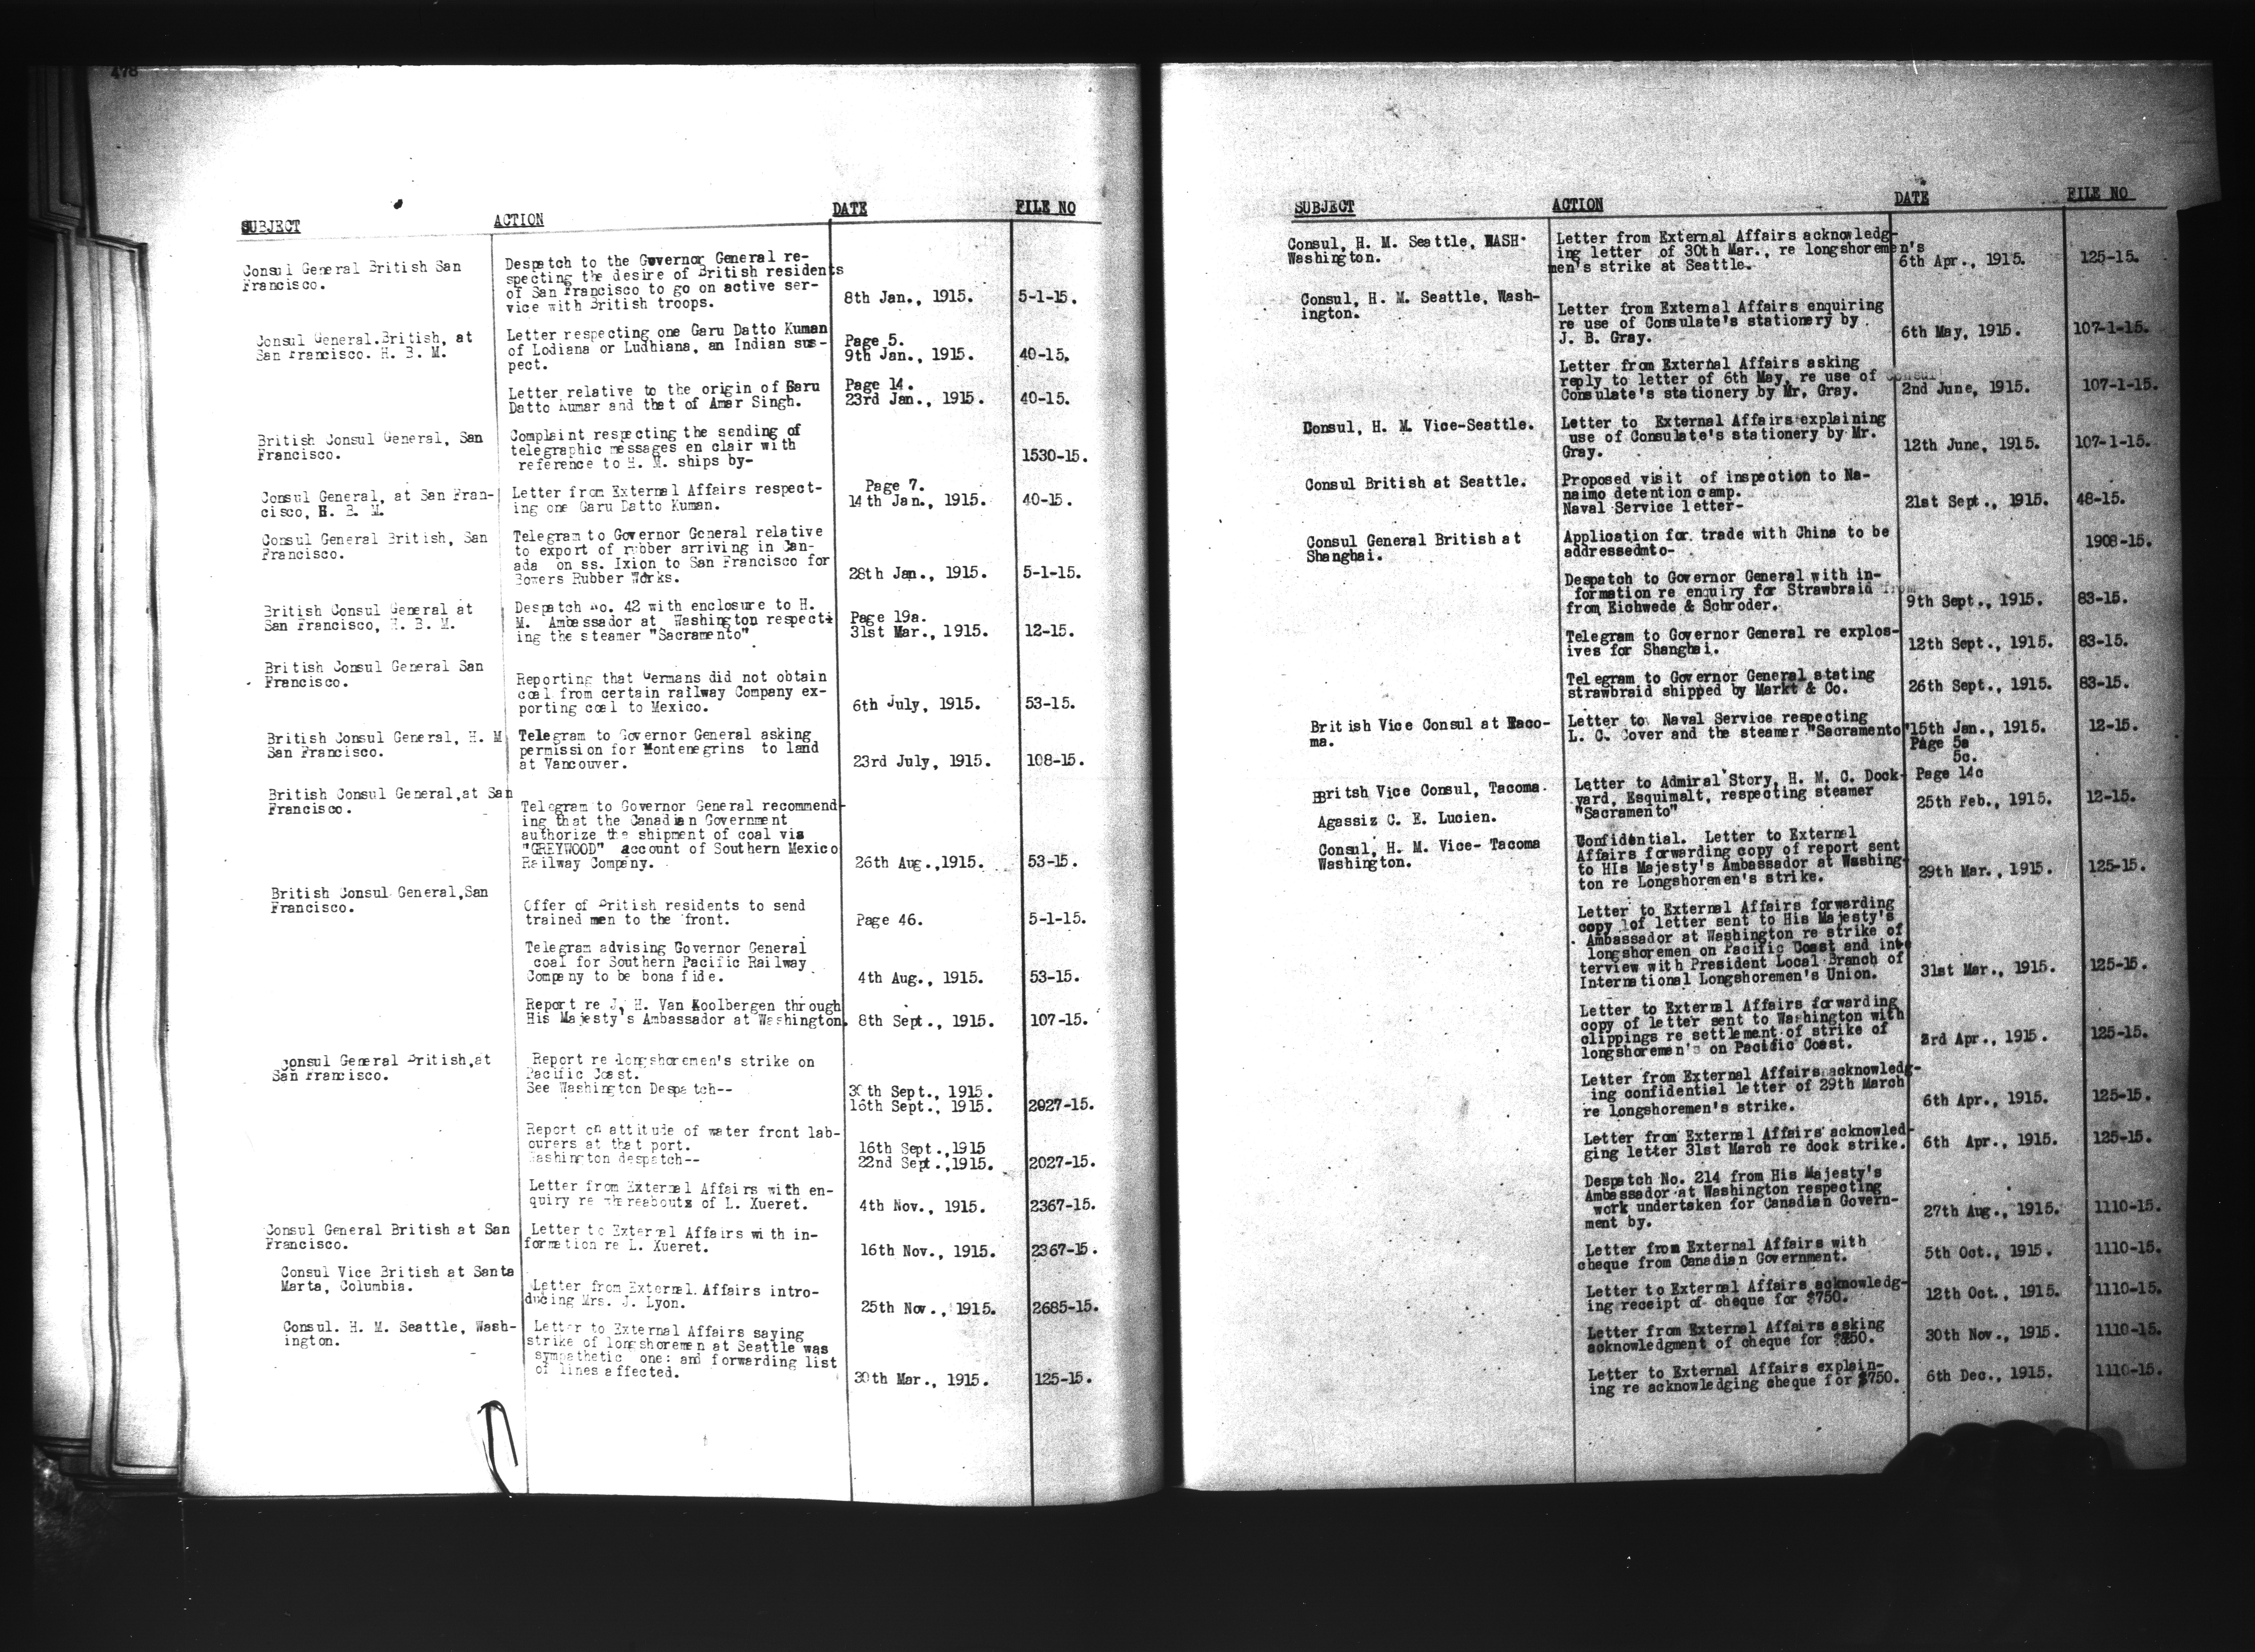 478
SUBJECT ACTION DATE FILE NO
Consul General British San
Francisco.
Despatch to the Governor General re-
specting the desire of British residents
of San Francisco to go on active ser-
vice with British troops. 8th Jan., 1915. 5-1-15.
Consul General.British, at
San Francisco. H. B. M.
Letter respecting one Garu Datto Kuman
of Lodiana or Ludhiana, an Indian sus-
pect.
Page 5.
9th Jan., 1915. 40-15.
Letter relative to the origin of Garu
Datto Kumar and that of Amar Singh.
Page 14.
23rd Jan., 1915. 40-15.
British Consul General, San
Francisco.
Complaint respecting the sending of
telegraphic messages en clair with
reference to H. M. ships by- 1530-15.
Consul General, at San Fran-
cisco, H. B. M.
Letter from External Affairs respect-
ing one Garu Datto Kuman.
Page 7.
14th Jan., 1915. 40-15.
Consul General British, San
Francisco.
Telegram to Governor General relative
to export of rubber arriving in Can-
ada on ss. Ixion to San Francisco for
Bowers Rubber Works. 28th Jan., 1915. 5-1-15.
British Consul General at
San Francisco, H. B. M.
Despatch No. 42 with enclosure to H.
M. Ambassador at Washington respect-
ing the steamer "Sacramento".
Page 19a.
31st Mar., 1915. 12-15.
British Consul General San
Francisco.
Reporting that Germans did not obtain
coal from certain railway Company ex-
porting coal to Mexico. 6th July, 1915. 53-15.
British Consul General, H. M
San Francisco.
Telegram to Governor General asking
permission for Montenegrins to land
at Vancouver. 23rd July, 1915. 108-15.
British Consul General,at San
Francisco.
Telegram to Governor General recommend-
ing that the Canadian Government
authorize the shipment of coal via
"GREYWOOD" account of Southern Mexico
Railway Company. 26th Aug.,1915. 53-15.
British Consul General,San
Francisco.
Offer of British residents to send
trained men to the front. Page 46. 5-1-15.
Telegram advising Governor General
coal for Southern Pacific Railway
Company to be bona fide. 4th Aug., 1915. 53-15.
Report re J. H. Van Koolbergen through
His Majesty's Ambassador at Washington. 8th Sept., 1915. 107-15.
Consul General British,at
San Francisco.
Report re longshoremen's strike on
Pacific Coast.
See Washington Despatch-- 30th Sept., 1915.
16th Sept., 1915. 2027-15.
Report on attitude of water front lab-
ourers at that port. 16th Sept.,1915
Washington despatch-- 22nd Sept.,1915. 2027-15.
Letter from External Affairs with en-
quiry re whreabouts of L. Xueret. 4th Nov., 1915. 2367-15.
Consul General British at San
Francisco.
Letter to External Affairs with in-
formation re L. Xueret. 16th Nov., 1915. 2367-15.
Consul Vice British at Santa
Marta, Columbia.
Letter from External Affairs intro-
ducing Mrs. J. Lyon. 25th Nov., 1915. 2685-15.
Consul. H. M. Seattle, Wash-
ington.
Letter to External Affairs saying
strike of longshoremen at Seattle was
sympathetic one: and forwarding list
of lines affected. 30th Mar., 1915. 125-15.
SUBJECT ACTION DATE FILE NO
Consul, H. M. Seattle, WASH
Washington.
Letter from External Affairs acknowledg-
ing letter of 30th Mar., re longshoremen's
men's strike at Seattle. 6th Apr., 1915. 125-15.
Consul, H. M. Seattle, Wash-
ington.
Letter from External Affairs enquiring
re use of Consulate's stationery by
J. B. Gray. 6th May, 1915. 107-1-15.
Letter from External Affairs asking
reply to letter of 6th May, re use of Consul
Consulate's stationery by Mr. Gray. 2nd June, 1915. 107-1-15.
Consul, H. M. Vice-Seattle.
Letter to External Affairs explaining
use of Consulate's stationery by Mr.
Gray. 12th June, 1915. 107-1-15.
Consul British at Seattle.
Proposed visit of inspection to Na-
naimo detention camp.
Naval Service letter- 21st Sept., 1915. 48-15.
Consul General British at
Shanghai.
Application for trade with China to be
addressedmto- 1908-15.
Despatch to Governor General with in-
formation re enquiry for Strawbraid from
from Eichwede & Schroder. 9th Sept., 1915. 83-15.
Telegram to Governor General re explos-
ives for Shanghai. 12th Sept., 1915. 83-15.
Telegram to Governor General stating
strawbraid shipped by Markt & Co. 26th Sept., 1915. 83-15.
British Vice Consul at Taco-
ma.
Letter to Naval Service respecting
L. C. Cover and the steamer "Sacramento" 15th Jan., 1915. 12-15.
Page 5a
5c.
British Vice Consul, Tacoma.
Letter to Admiral Story, H. M. C. Dock-
yard, Esquimalt, respecting steamer
"Sacramento"
Page 14c
25th Feb., 1915. 12-15.
Agassiz C. E. Lucien.
Consul, H. M. Vice- Tacoma
Washington.
Confidential. Letter to External
Affairs forwarding copy of report sent
to His Majesty's Ambassador at Washing-
ton re Longshoremen's strike. 29th Mar., 1915. 125-15.
Letter to External Affairs forwarding
copy of letter sent to His Majesty's
Ambassador at Washington re strike of
longshoremen on Pacific Coast and int
terview with President Local Branch of
International Longshoremen's Union. 31st Mar., 1915. 125-15.
Letter to External Affairs forwarding
copy of letter sent to Washington with
clippings re settlement of strike of
longshoremen's on Pacific Coast. 3rd Apr., 1915. 125-15.
Letter from External Affairs acknowledg-
ing confidential letter of 29th March
re longshoremen's strike. 6th Apr., 1915. 125-15.
Letter from External Affairs acknowled-
ging letter 31st March re dock strike. 6th Apr., 1915. 125-15.
Despatch No. 214 from His Majesty's
Ambassador at Washington respecting
work undertaken for Canadian Govern-
ment by. 27th Aug., 1915. 1110-15.
Letter from External Affairs with
cheque from Canadian Government. 5th Oct., 1915. 1110-15.
Letter to External Affairs acknowledg-
ing receipt of cheque for $750. 12th Oct., 1915. 1110-15.
Letter from External Affairs asking
acknowledgment of cheque for 30th Nov., 1915. 1110-15.
Letter to External Affairs explain-
ing re acknowledging cheque for $750. 6th Dec., 1915. 1110-15.